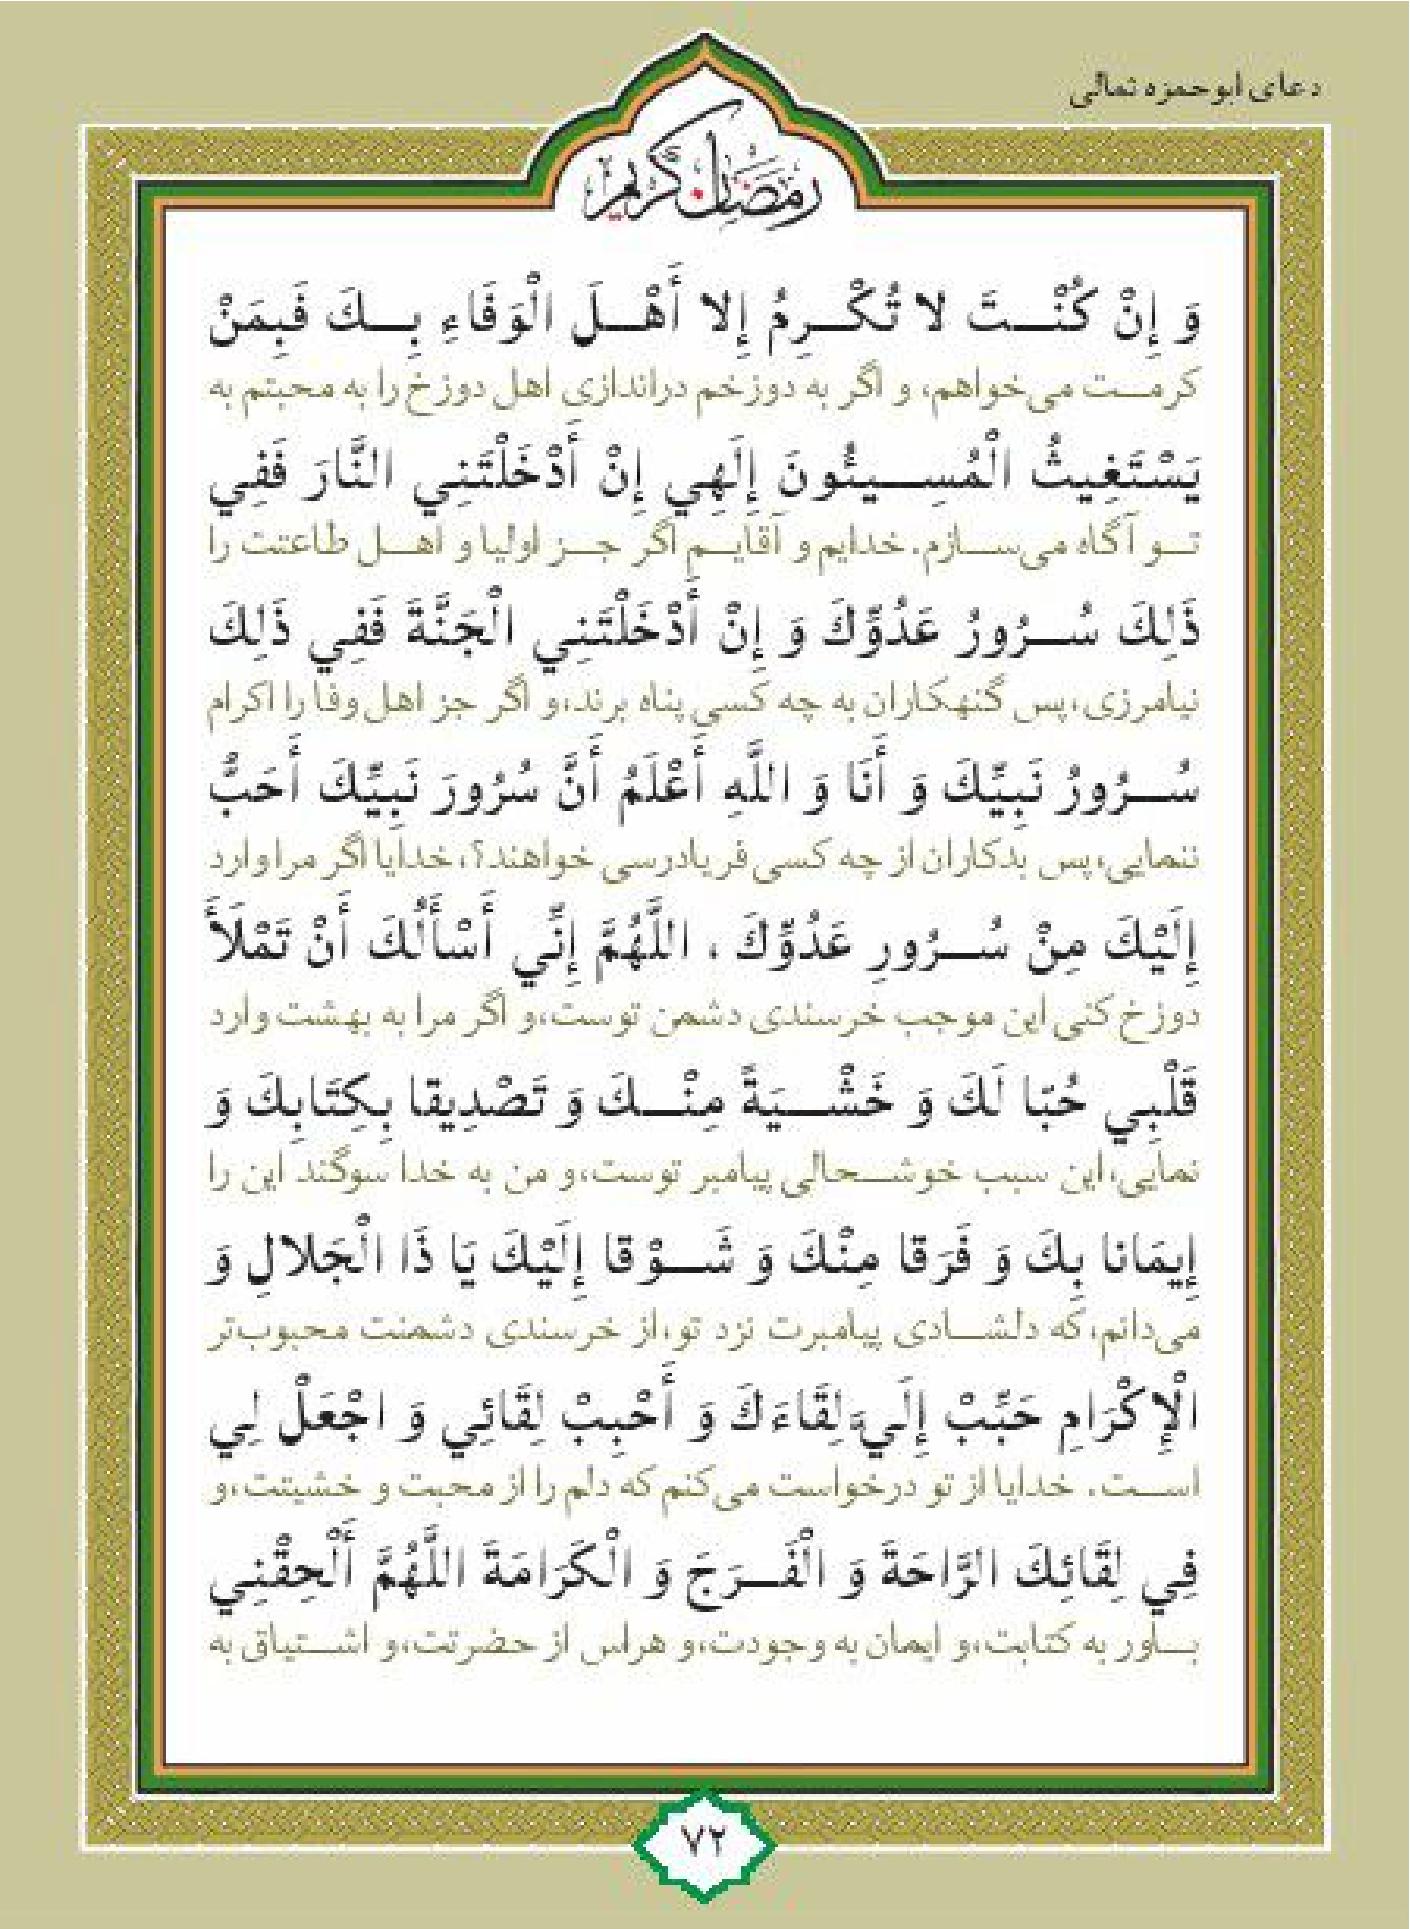 دعای ابوحمزه ثمالی
رمضان كريم
وَ إِنْ كُنْتَ لا تُكْرِمُ إِلا أَهْلَ الْوَفَاءِ بِكَ فَبِمَنْ
کرمت می‌خواهم، و اگر به دوزخم دراندازی اهل دوزخ را به محبتم به
يَسْتَغِيثُ الْمُسِيئُونَ إِلَهِي إِنْ أَدْخَلْتَنِي النَّارَ فَفِي
تو آگاه می‌سازم. خدایم و آقایم اگر جز اولیا و اهل طاعتت را
ذَلِكَ سُرُورُ عَدُوِّكَ وَ إِنْ أَدْخَلْتَنِي الْجَنَّةَ فَفِي ذَلِكَ
نیامرزی، پس گنهکاران به چه کسی پناه برند، و اگر جز اهل وفا را اکرام
سُرُورُ نَبِيِّكَ وَ أَنَا وَ اللَّهِ أَعْلَمُ أَنَّ سُرُورَ نَبِيِّكَ أَحَبُّ
ننمایی، پس بدکاران از چه کسی فریادرسی خواهند؟، خدایا اگر مرا وارد
إِلَيْكَ مِنْ سُرُورِ عَدُوِّكَ ، اللَّهُمَّ إِنِّي أَسْأَلُكَ أَنْ تَمْلَأَ
دوزخ کنی این موجب خرسندی دشمن توست، و اگر مرا به بهشت وارد
قَلْبِي حُبّا لَكَ وَ خَشْيَةً مِنْكَ وَ تَصْدِيقا بِكِتَابِكَ وَ
نمایی، این سبب خوشحالی پیامبر توست، و من به خدا سوگند این را
إِيمَانا بِكَ وَ فَرَقا مِنْكَ وَ شَوْقا إِلَيْكَ يَا ذَا الْجَلالِ وَ
می‌دانم، که دلشادی پیامبرت نزد تو، از خرسندی دشمنت محبوب‌تر
الْإِكْرَامِ حَبِّبْ إِلَيَّ لِقَاءَكَ وَ أَحْبِبْ لِقَائِي وَ اجْعَلْ لِي
است. خدایا از تو درخواست می‌کنم که دلم را از محبت و خشیتت، و
فِي لِقَائِكَ الرَّاحَةَ وَ الْفَرَجَ وَ الْكَرَامَةَ اللَّهُمَّ أَلْحِقْنِي
باور به کتابت، و ایمان به وجودت، و هراس از حضرتت، و اشتیاق به
۷۲